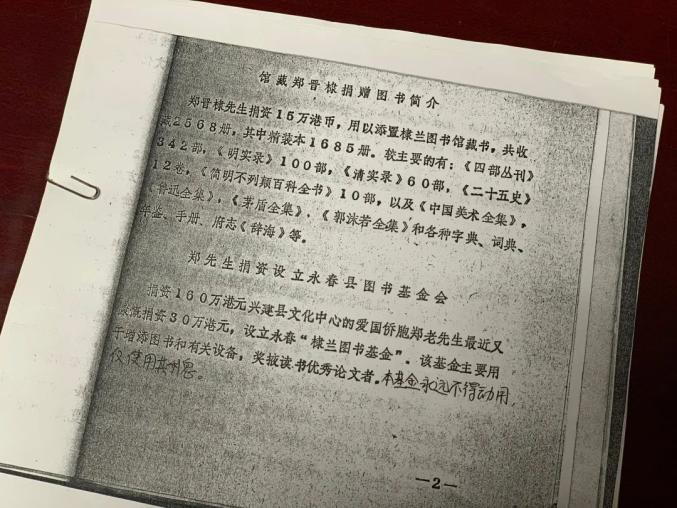 馆藏郑晋棣捐赠图书简介
郑晋棣先生捐资15万港币，用以添置棣兰图书馆藏书，共收
藏2568册，其中精装本1685册。较主要的有：《四部丛刊》
342部，《明实录》100部，《清实录》60部，《二十五史》
12卷，《简明不列颠百科全书》10部，以及《中国美术全集》，
《鲁迅全集》，《茅盾全集》，《郭沫若全集》和各种字典、词典、
年鉴、手册、府志《辞海》等。
郑先生捐资设立永春县图书基金会
捐资160万港元兴建县文化中心的爱国侨胞郑老先生最近又
慷慨捐资30万港元，设立永春“棣兰图书基金”。该基金主要用
于增添图书和有关设备，奖掖读书优秀论文者。本基金永远不得动用，
仅使用其利息。
—2—